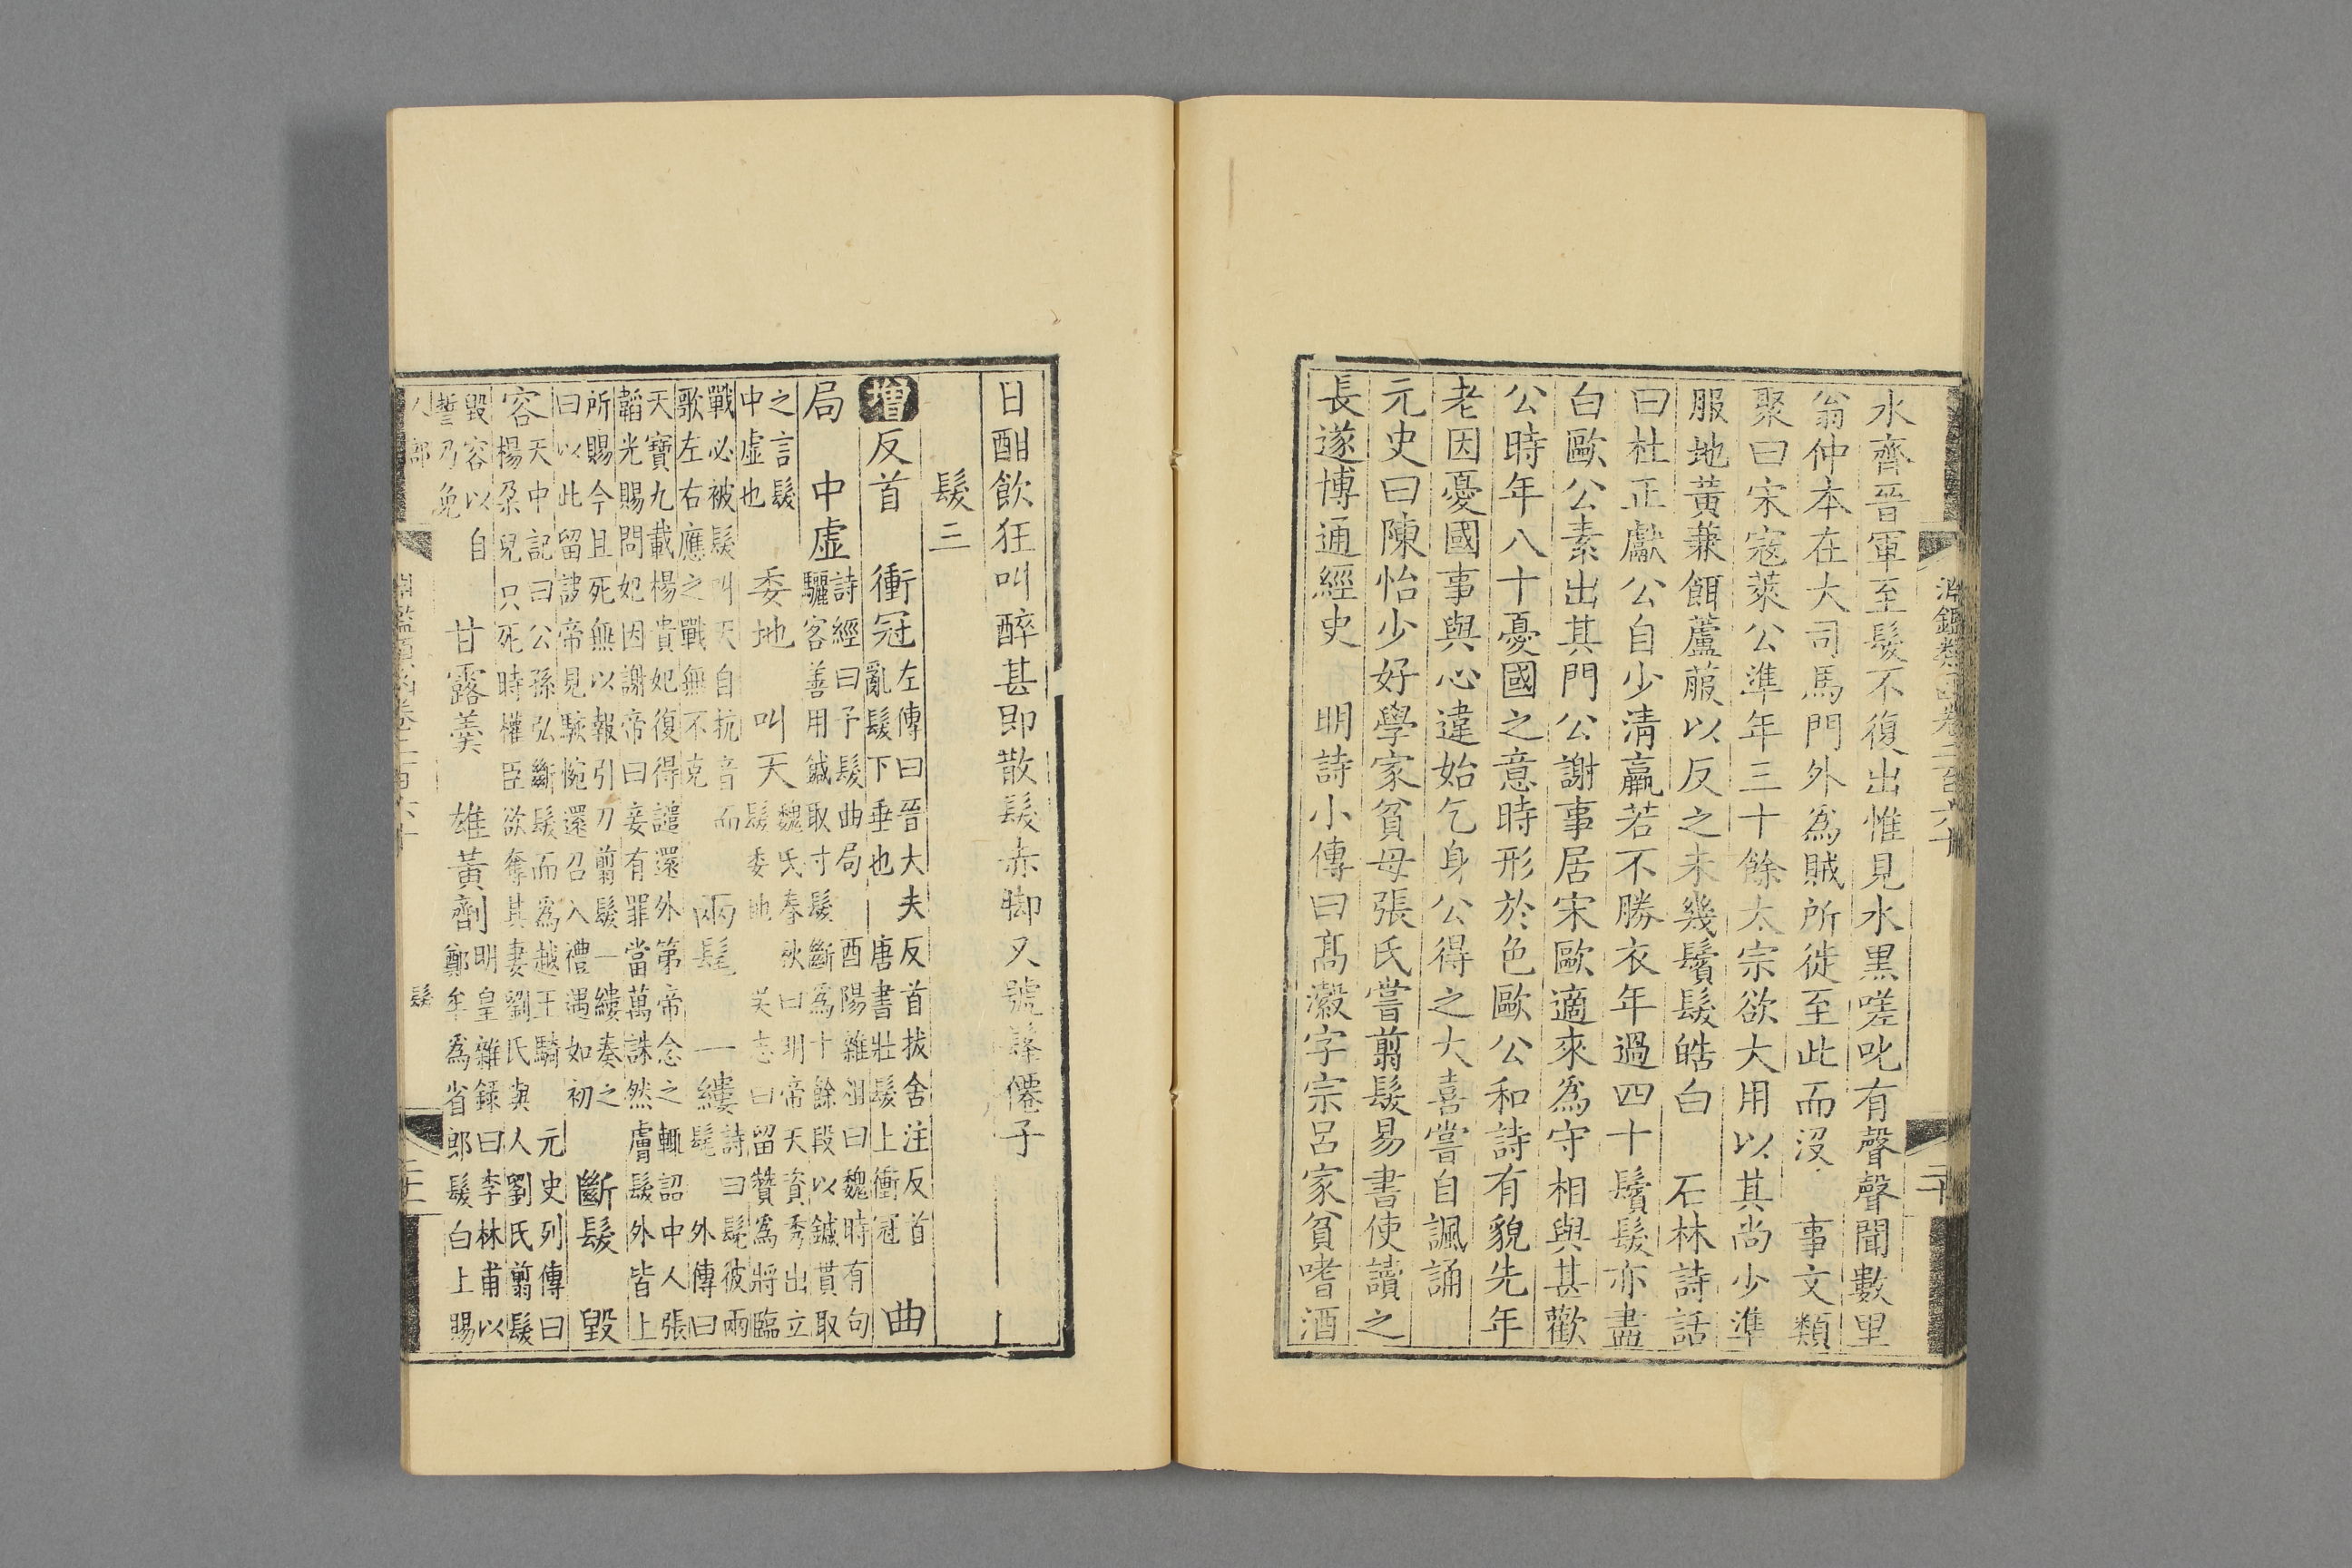 水齊晉軍至髮不復出惟見水黒嗟叱有聲聲聞數里
翁仲本在大司馬門外爲賊所徙至此而沒 事文類
聚曰宋寇萊公準年三十餘太宗欲大用以其尚少準
服地黃兼餌蘆菔以反之未幾鬢髮皓白 石林詩話
曰杜正獻公自少清羸若不勝衣年過四十鬢髮亦盡
白歐公素出其門公謝事居宋歐適來爲守相與甚歡
公時年八十憂國之意時形於色歐公和詩有貌先年
老因憂國事與心違始乞身公得之大喜嘗自諷誦
元史曰陳怡少好學家貧母張氏嘗剪髮易書使讀之
長遂博通經史 明詩小傳曰髙瀫字宗呂家貧嗜酒
淵鑑類函卷二百六十
二十
日酣飲狂叫醉甚即散髮赤脚又號髯僊子
髮三
增反首 衝冠 左傳曰晉大夫反首拔舍注反首
亂髮下垂也 唐書壯髮上衝冠 曲
局 詩經曰予髮曲局 中虛 酉陽雜俎曰魏時有句
驪客善用鍼取寸髮斷爲十餘段以鍼貫取
之言髮
中虛也 委地 叫天 魏氏春秋曰明帝天資秀出立
髮委地 載記曰留贊爲將臨
戰必被髮叫天自抗音而
歌左右應之戰無不克 兩髦 一縷 詩曰髧彼兩
髦 外傳曰
天寶九載楊貴妃復得譴還外第帝念之輒詔中人張
韜光賜問妃因謝帝曰妾有罪當萬誅然膚髮外皆上
所賜今且死無以報引刀剪髮一縷奏之
曰以此留訣帝見駭惋還召入禮遇如初 斷髮 毀
容 天中記曰公孫弘斷髮而爲越王騎 元史列傳曰
楊朶兒只死時權臣欲奪其妻劉氏與人劉氏剪髮
毀容以自
誓乃免 甘露羹 雄黃劑 明皇雜録曰李林甫以
鄭牟爲省郎髮白上賜
人部
髮